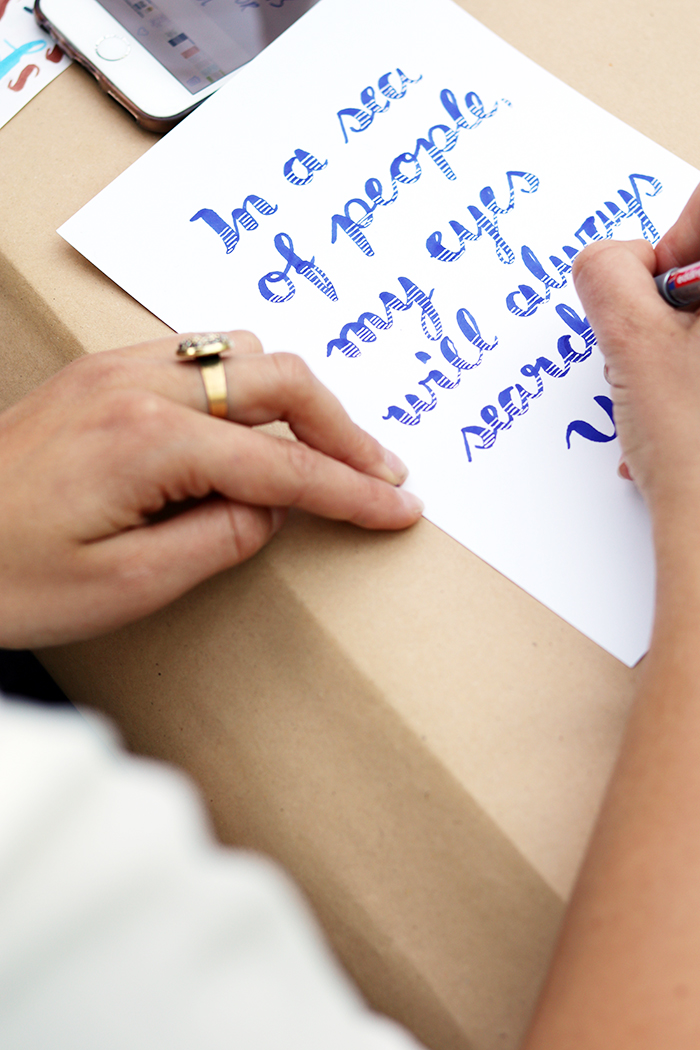 In a sea
of people,
my eyes
will always
search